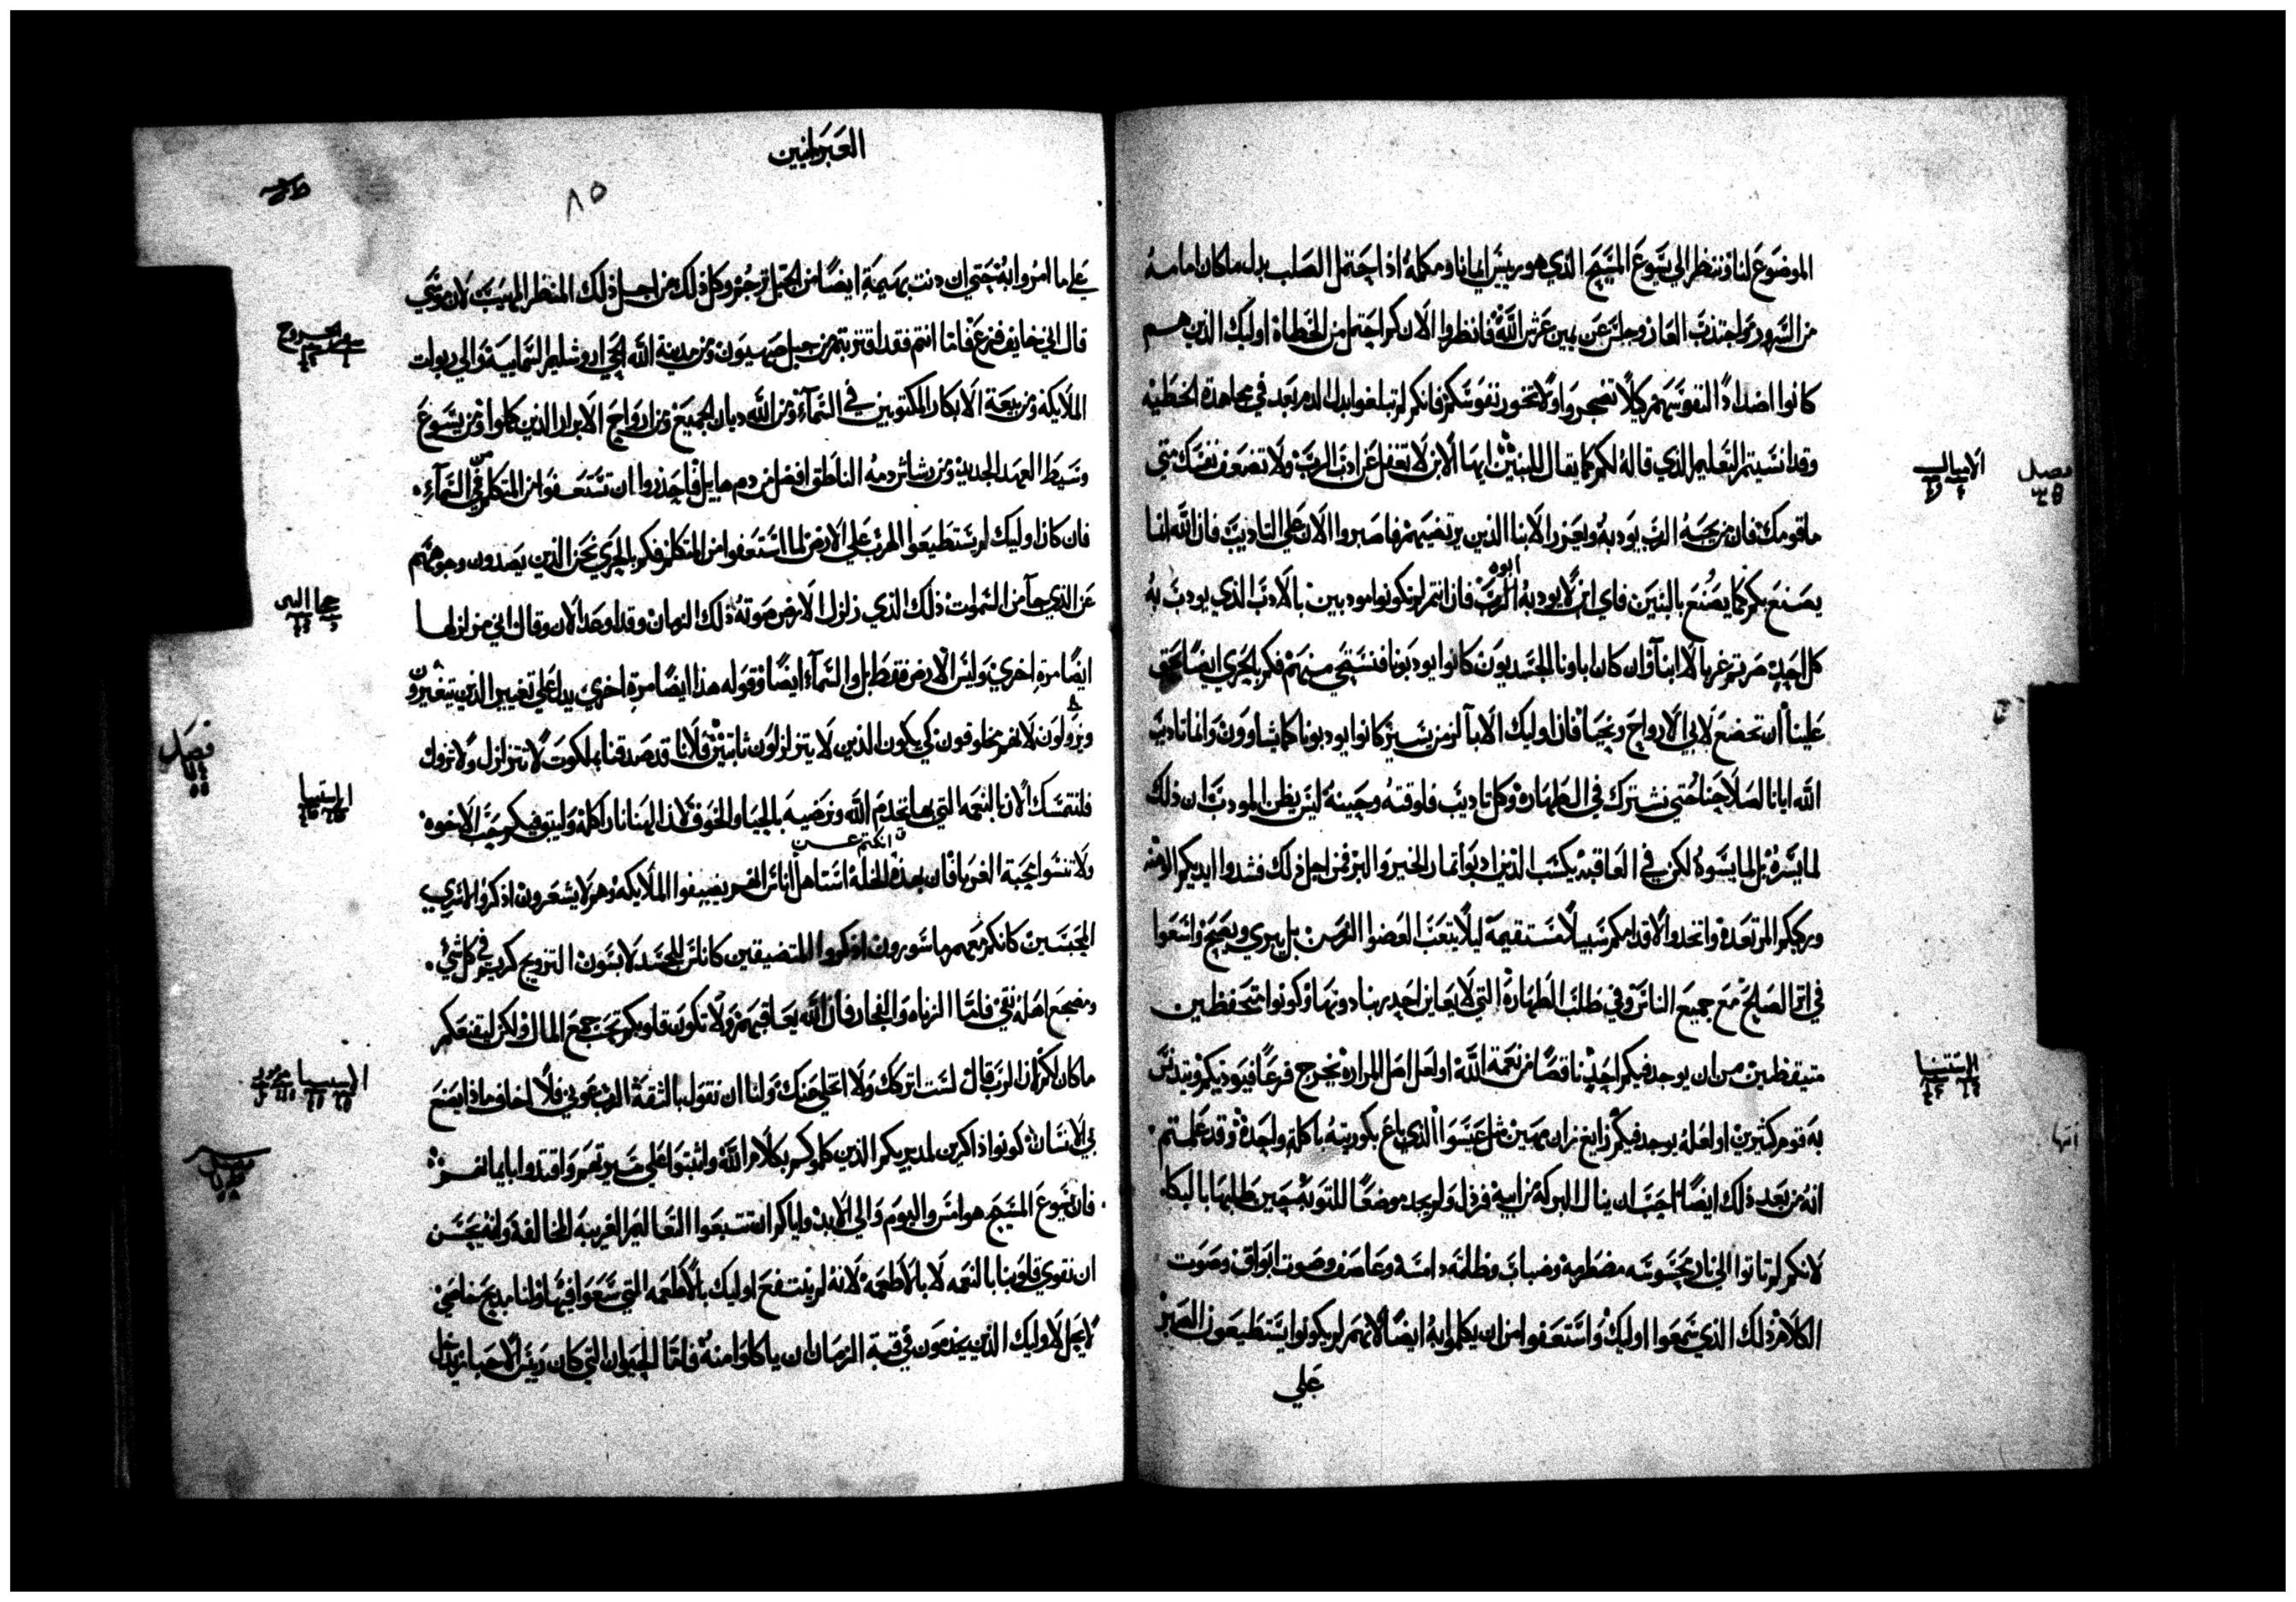 الموضوع لنا وننظر الي يسوع المسيح الذي هو رييس ايماننا ومكمله اذ احتمل الصلب بدل ما كان امامه
من السرور واجتذب العار وجلس عن يمين عرش الله فانظروا الان كم احتمل من الخطاة اوليك الذين هم
كانوا اضدادًا لنفوسهم كيلا تضجروا ولا تخور نفوسكم فانكم لم تبلغوا بعد الدم بعد في مجاهدة الخطيه
وقد انسيتم التعليم الذي قاله لكم كما يقال للبنين ايها الابن لا تغفل عن ادب الرب ولا تضعف نفسك متي
ما قومك فان من يحبه الرب يودبه ويعزر الابنا الذين يرتضيهم فاصبروا الان علي التاديب فان الله انما
يصنع بكم كما يصنع بالبنين فاي ابن لا يودبه ابوه الرب فان انتم لم تكونوا مودبين بالادب الذي يودب به
كل احد صرتم غربا لا ابنآ وان كان اباونا الجسديون كانوا يودبونا فنستحي منهم فكم بالحري ايضًا يحق
علينا ان نخضع لابي الارواح ونحيا فان اوليك الابآ لزمن يسير كانوا يودبونا كما يشاوون وانما تاديب
الله ايانا لصلاحنا حتي نشترك في الطهاره وكل تاديب فلوقته وحينه ليس يظن المودب ان ذلك
لما يسره بل لما يسوه لكن في العاقبه يكسب الذين ادبوا ثمار الخير والبر فمن اجل ذلك فشدوا ايديكم الوهنه
وركبكم المرتعده واتخذوا لاقدامكم سبيلا مستقيمة ليلا يتعب العضوا الزمن بل يبري ويصح واسعوا
في اثر الصلح مع جميع الناس وفي طلب الطهارة التي لا يعاين احد ربنا دونها وكونوا متحفظين
متيقظين من ان يوجد فيكم احد ناقصًا من نعمة الله او لعل اصل المراره يخرج فرعًا فيوذيكم ويتدنس
به قوم كثيرين او لعله يوجد فيكم زايغ زان مهين مثل عيسوا الذي باع بكوريته باكلة واحدة وقد علمتم
انه من بعد ذلك ايضًا احب ان ينال البركة من ابيه فرذل ولم يجد موضعًا للتوبة حين طلبها بالبكا
لانكم لم تاتوا الي نار محسوسه مضطرمة وضباب وظلمه دامسة وعاصف وصوت ابواق وصوت
الكلام ذلك الذي سمعوا اوليك واستعفوا من ان يكلموا به ايضًا لانهم لم يكونوا يستطيعون الصبر
علي
فصل
الامثال
الاستثنا
العبرانيين
٨٥
علي ما امروا به حتي ان دنت بهيمة ايضًا من الجبل ترجم وكل ذلك من اجل ذلك المنظر المهيب لان موسي
قال اني خايف فزع فاما انتم فقد اقتربتم من جبل صهيون ومن مدينة الله الحي اروشليم السمايية والي ربوات
الملايكه ومن بيعة الابكار المكتوبين في السمآ ومن الله ديان الجميع ومن ارواح الابرار الذين كملوا ومن يسوع
وسيط العهد الجديد ومن رشاش دمه الناطق افضل من دم هابيل فاحذروا ان تستعفوا من المتكلم من السمآء
فان كان اوليك لم يستطيعوا الهرب علي الارض لما استعفوا من المتكلم فكم بالحري نحن الذين يصدون وجوههم
عن الذي جآ من السموات ذلك الذي زلزل الارض صوته ذلك الزمان وقد اوعد الان وقال اني مزلزلها
ايضًا مرة اخري وليس الارض فقط بل والسمآء ايضًا وقوله هذا ايضًا مرة اخري يدل علي تغيير الذين يتغيرون
ويزولون لانهم مخلوقون كي يكون الذين لا يتزلزلون ثابتين فلانا قد صدقنا بملكوت لا تتزلزل ولا تزول
فلنتمسك الان بالنعمه التي بها نخدم الله ونرضيه بالحيا والخوف لان الهنا نار اكله وليتم فيكم حب الاخوه
ولا تنسوا محبة الغربا فان بهذه الخلة استاهل اناس ان يضيفوا الملايكه وهم لا يشعرون اذكروا الاسري
المحبسين كانكم معهم ماسورون اذكروا المتضيقين كاناس للجسد لابسون التزويج كريم في كل شي
ومضجع اهله نقي فاما الزناه والفجار فان الله يعاقبهم ولا تكون قلوبكم تحب جمع المال ولكن ليقنعكم
ما كان لكم لان الرب قال لست اتركك ولا اتخلي عنك ولنا ان نقول بالثقة الرب عوني فلا اخاف ماذا يصنع
بي الانسان كونوا ذاكرين لمدبريكم الذين كلموكم بكلام الله واثبتوا علي سيرتهم واقتدوا بايمانهم
فان يسوع المسيح هو امس واليوم والي الابد واياكم ان تتبعوا التعاليم الغريبه المخالفة وانه يحسن
ان نقوي قلوبنا بالنعمه لا بالاطعمة لانه لم ينتفع اوليك بالاطعمه التي سعوا فيها وانا مذبح خاص
لا يحل لاوليك الذين يخدمون في قبة الزمان ان ياكلوا منه فاما الحيوان التي كان رييس الاحبار يدخل
سفر الخروج
حجاي النبي
فصل
الاستثنا
فصل